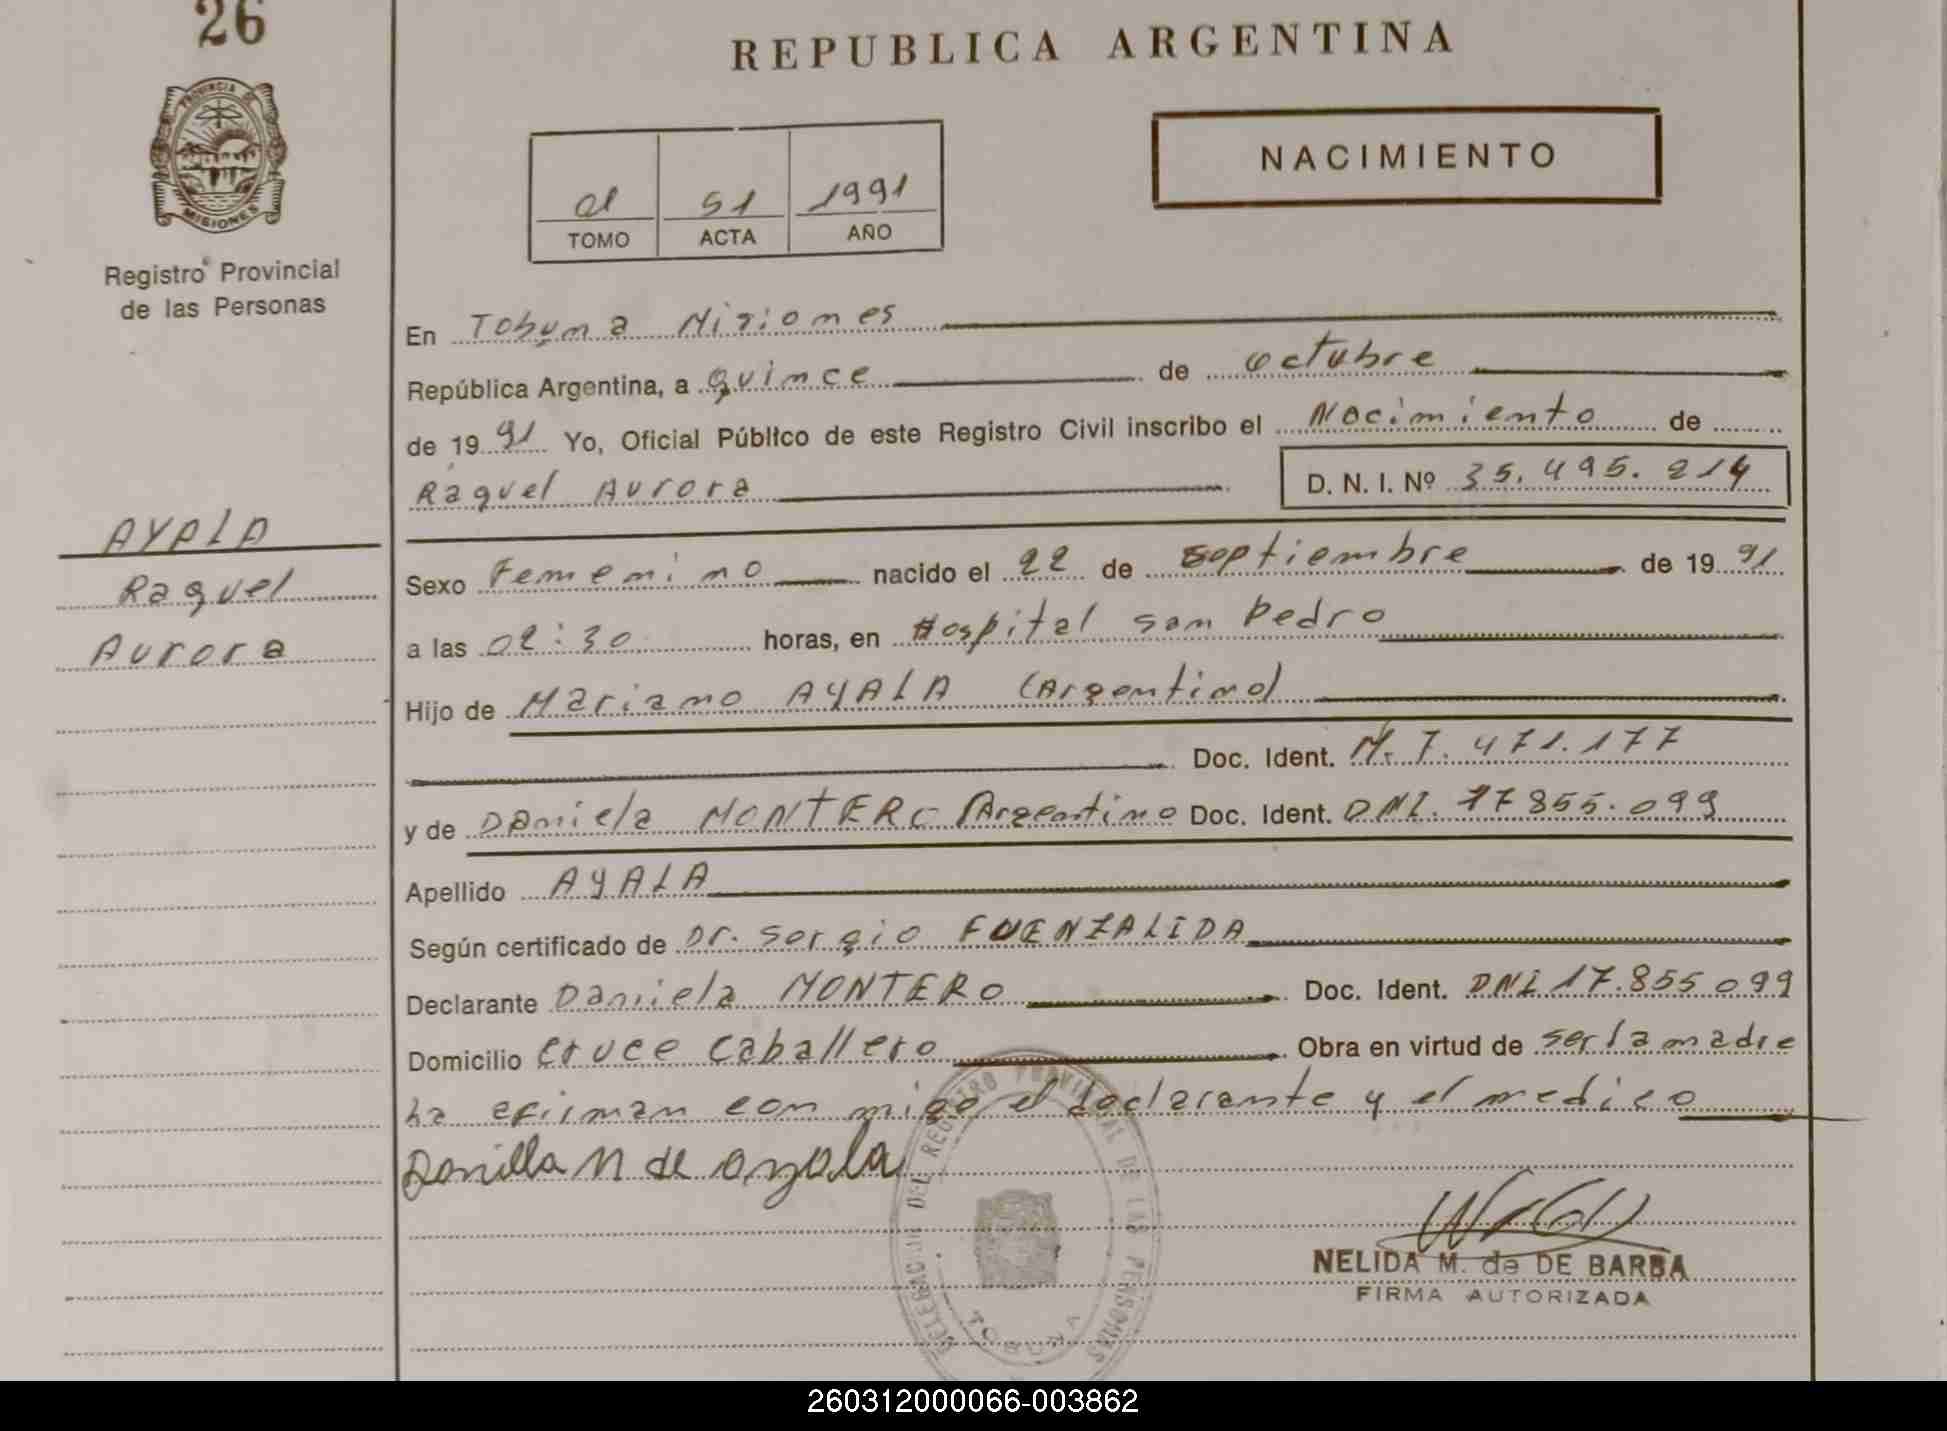 26
PROVINCIA DE
MISIONES
Registro Provincial
de las Personas
AYALA
Raquel
Aurora
REPUBLICA ARGENTINA
NACIMIENTO
01 51 1991
TOMO ACTA AÑO
En Tobuna Misiones
República Argentina, a quince de octubre
de 1991 Yo, Oficial Público de este Registro Civil inscribo el Nacimiento de
Raquel Aurora D. N. I. Nº 35.495.214
Sexo Femenino nacido el 22 de septiembre de 1991
a las 02:30 horas, en Hospital san Pedro
Hijo de Mariano AYALA (Argentino)
Doc. Ident. M. 7.471.177
y de Daniela MONTERO Argentino Doc. Ident. DNI. 17855.099
Apellido AYALA
Según certificado de Dr. Sergio FUENZALIDA
Declarante Daniela MONTERO Doc. Ident. DNI 17.855 099
Domicilio Cruce Caballero Obra en virtud de ser la madre
La firman con migo el declarante y el medico
M de Ayala
DEL REGISTRO PROVINCIAL DE LAS PERSONAS
TOBUNA
NELIDA M. de DE BARBA
FIRMA AUTORIZADA
260312000066-003862